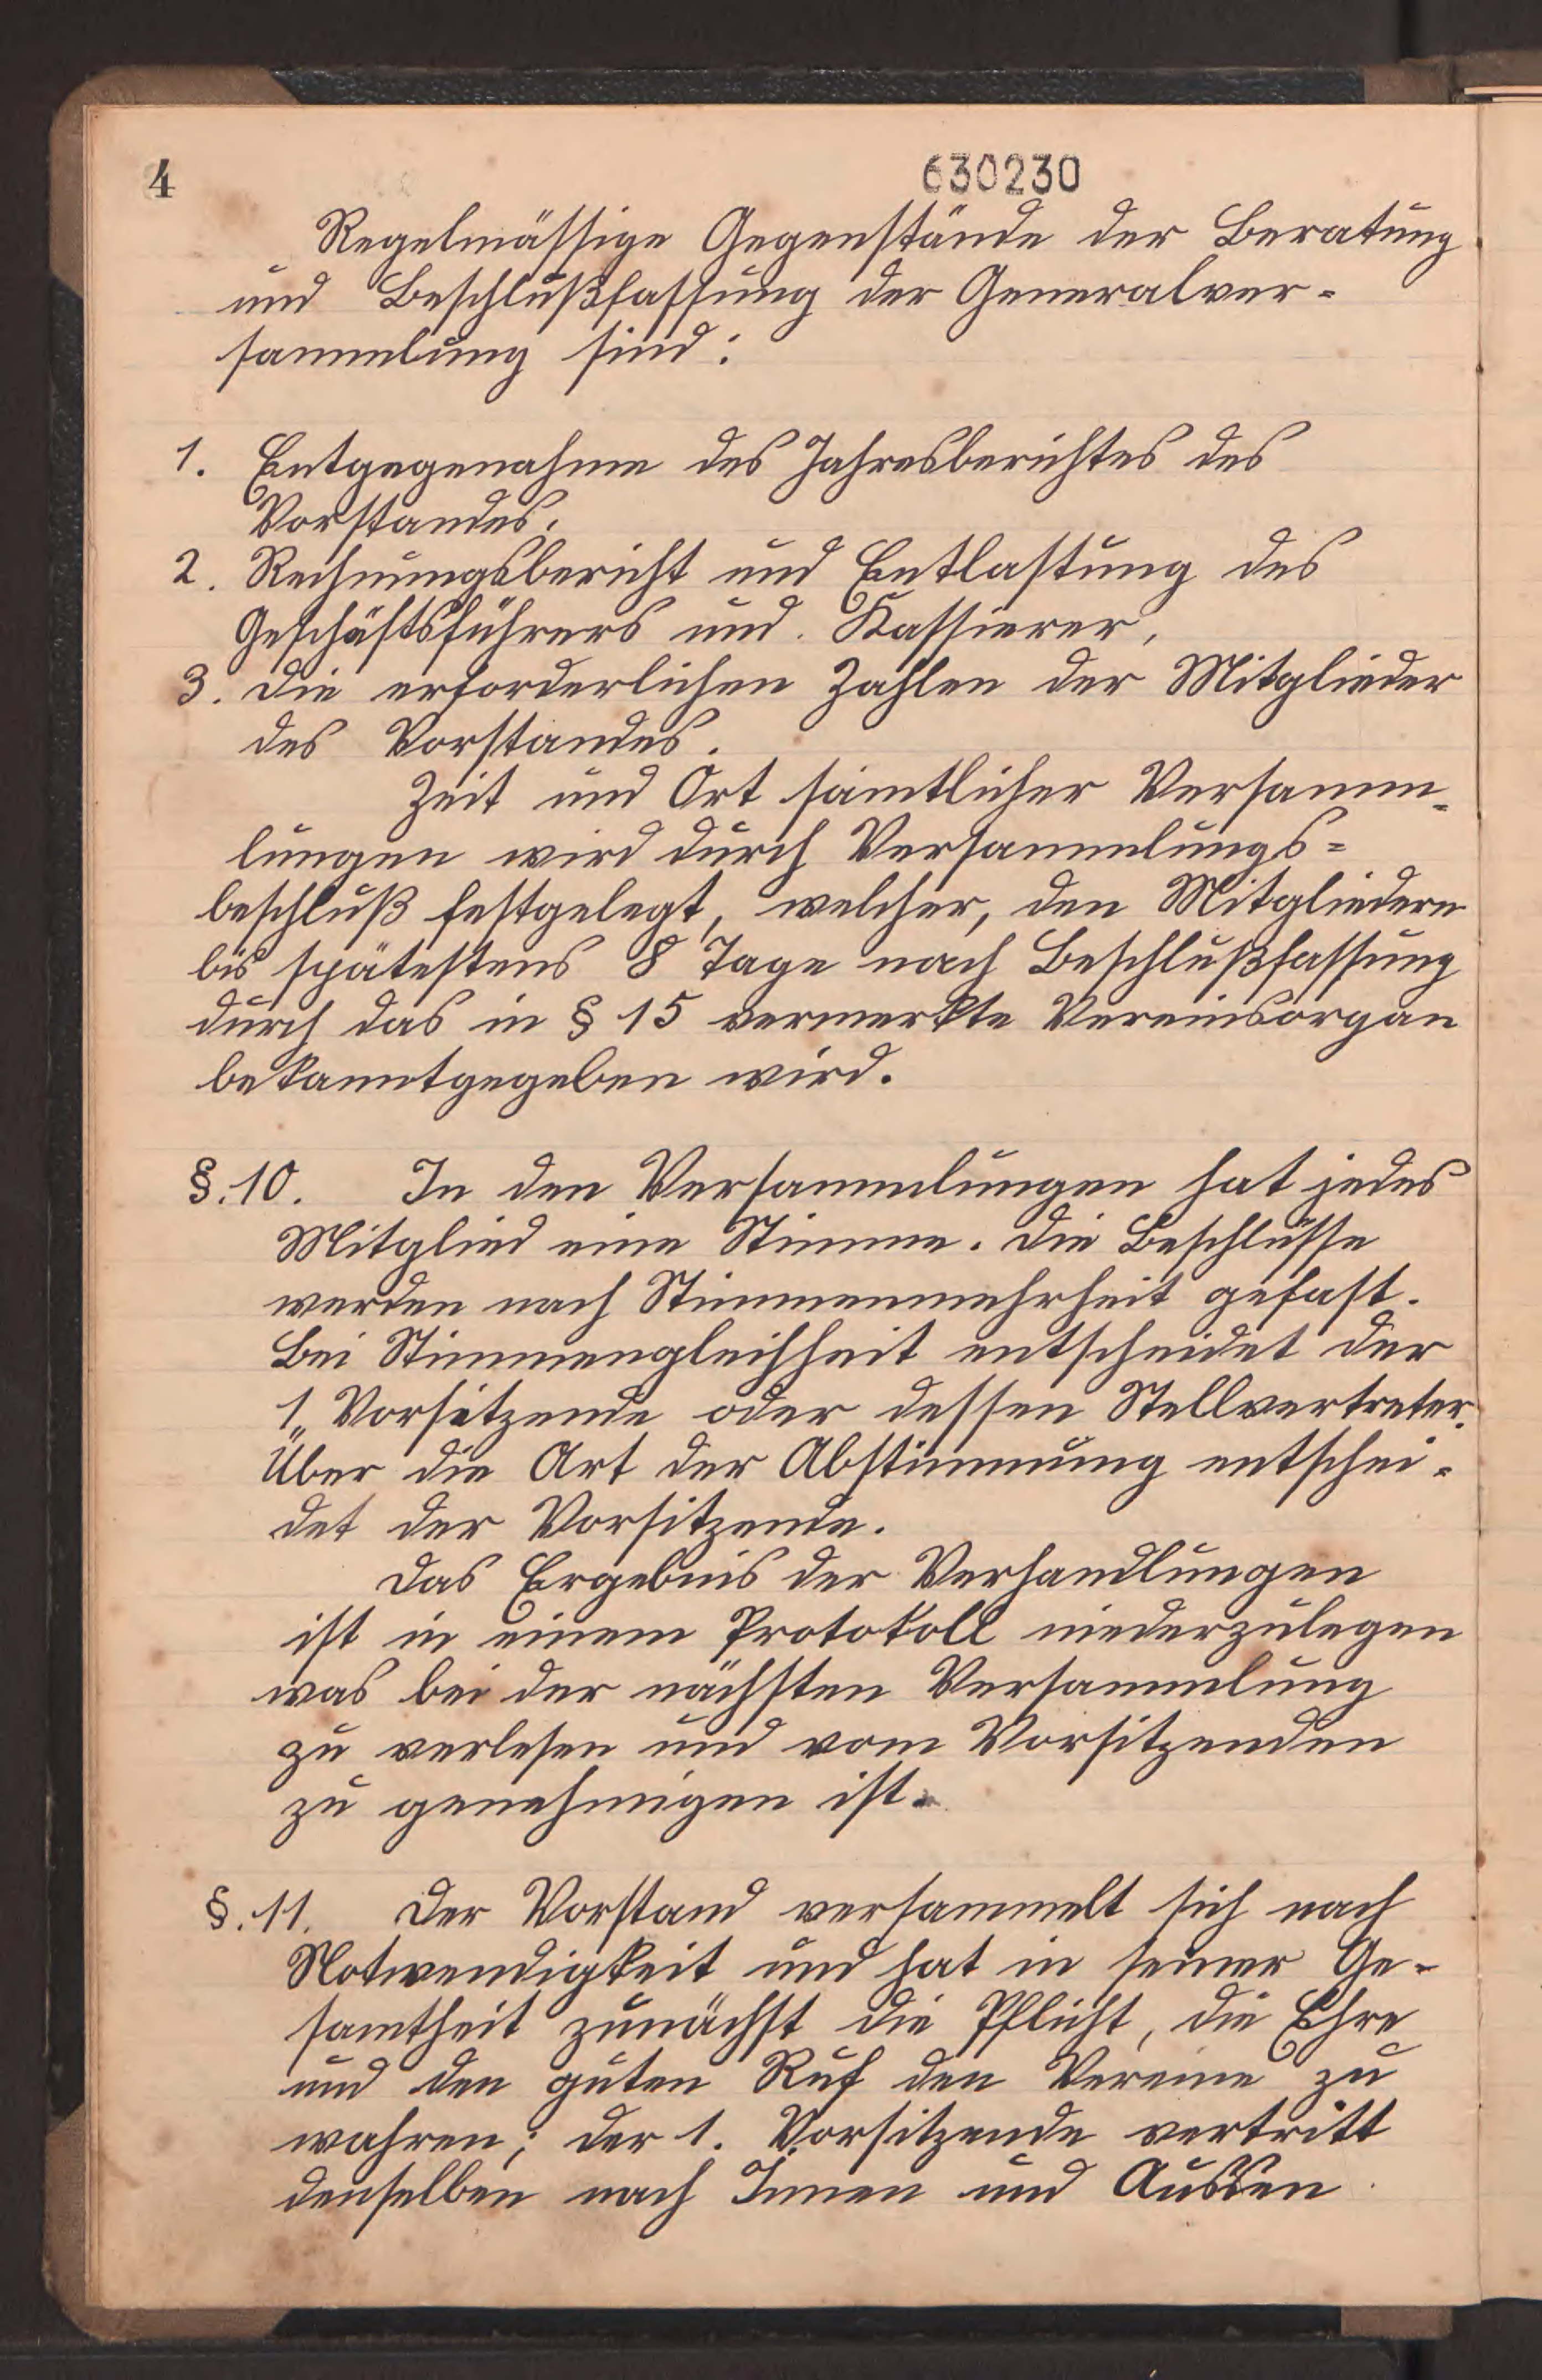 4
630230
Regelmässige Gegenstände der Beratung
und Beschlußfassung der Generalver=
sammlung sind:
1. Entgegenahme des Jahresberichtes des
Vorstandes.
2. Rechnungsbericht und Entlastung des
Geschäftsführers und Kassierer,
3. die erforderlichen Zahlen der Mitglieder
des Vorstandes.
Zeit und Ort sämtlicher Versamm=
lungen wird durch Versammlungs=
beschluß festgelegt, welcher, den Mitgliedern
bis spätestens 8 Tage nach Beschlußfassung
durch das in § 15 vermerkte Vereinsorgan
bekanntgegeben wird.
§. 10. In den Versammlungen hat jedes
Mitglied eine Stimme. Die Beschlüsse
werden nach Stimmenmehrheit gefast.
Bei Stimmengleichheit entscheidet der
1„ Vorsitzende oder dessen Stellvertreter.
Über die Art der Abstimmung entschei=
det der Vorsitzende.
Das Ergebnis der Verhandlungen
ist in einem Protokoll niederzulegen
was bei der nächsten Versammlung
zu verlesen und vom Vorsitzenden
zu genehmigen ist.
§. 11. Der Vorstand versammelt sich nach
Notwendigkeit und hat in seiner Ge=
samtheit zunächst die Pflicht, die Ehre
und den guten Ruf den Vereine zu
wahren; der 1. Vorsitzende vertritt
denselben nach Innen und Aussen